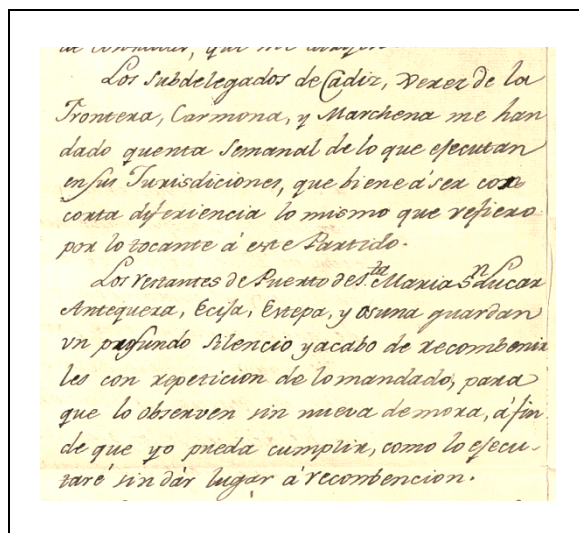 Los Subdelegados de Cadiz, Xerez de la
Frontera, Carmona, y Marchena me han
dado quenta Semanal de lo que ejecutan
en sus Jurisdiciones, que biene á ser con
corta diferiencia lo mismo que refiero
por lo tocante á este Partido.
Los restantes de Puerto de S.ta Maria S.n Lucar
Antequera, Ecija, Estepa, y Osuna guardan
un profundo silencio y acabo de recombenir
les con repeticion de lo mandado, para
que lo observen sin nueva demora, á fin
de que yo pueda cumplir, como lo ejecu-
taré sin dár lugar á recombencion.